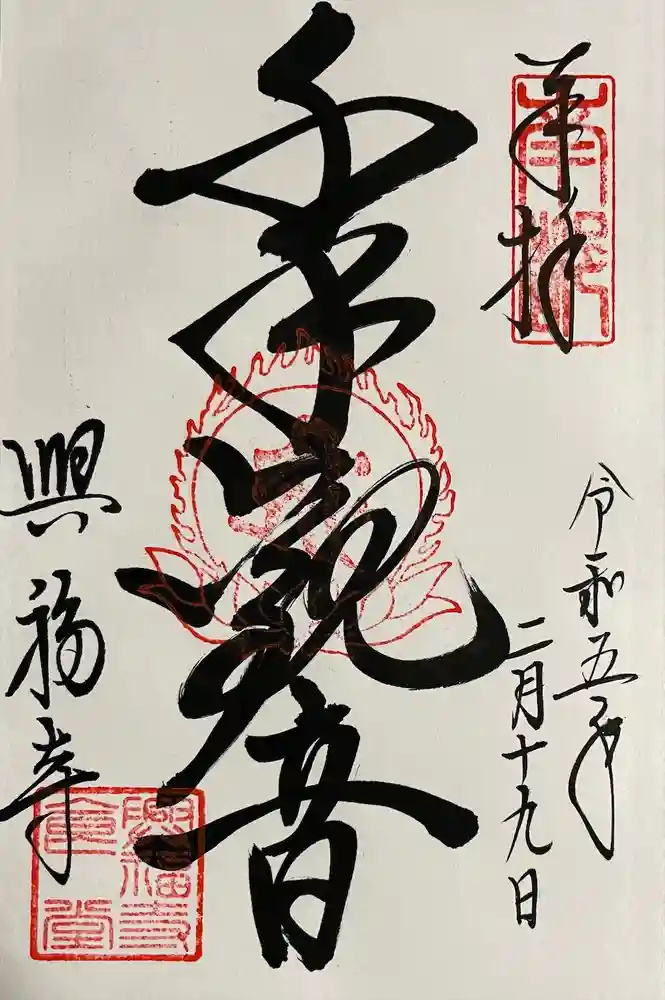 奉拝
南都
令和五年
二月十九日
千手観音
興福寺
興福寺
食堂